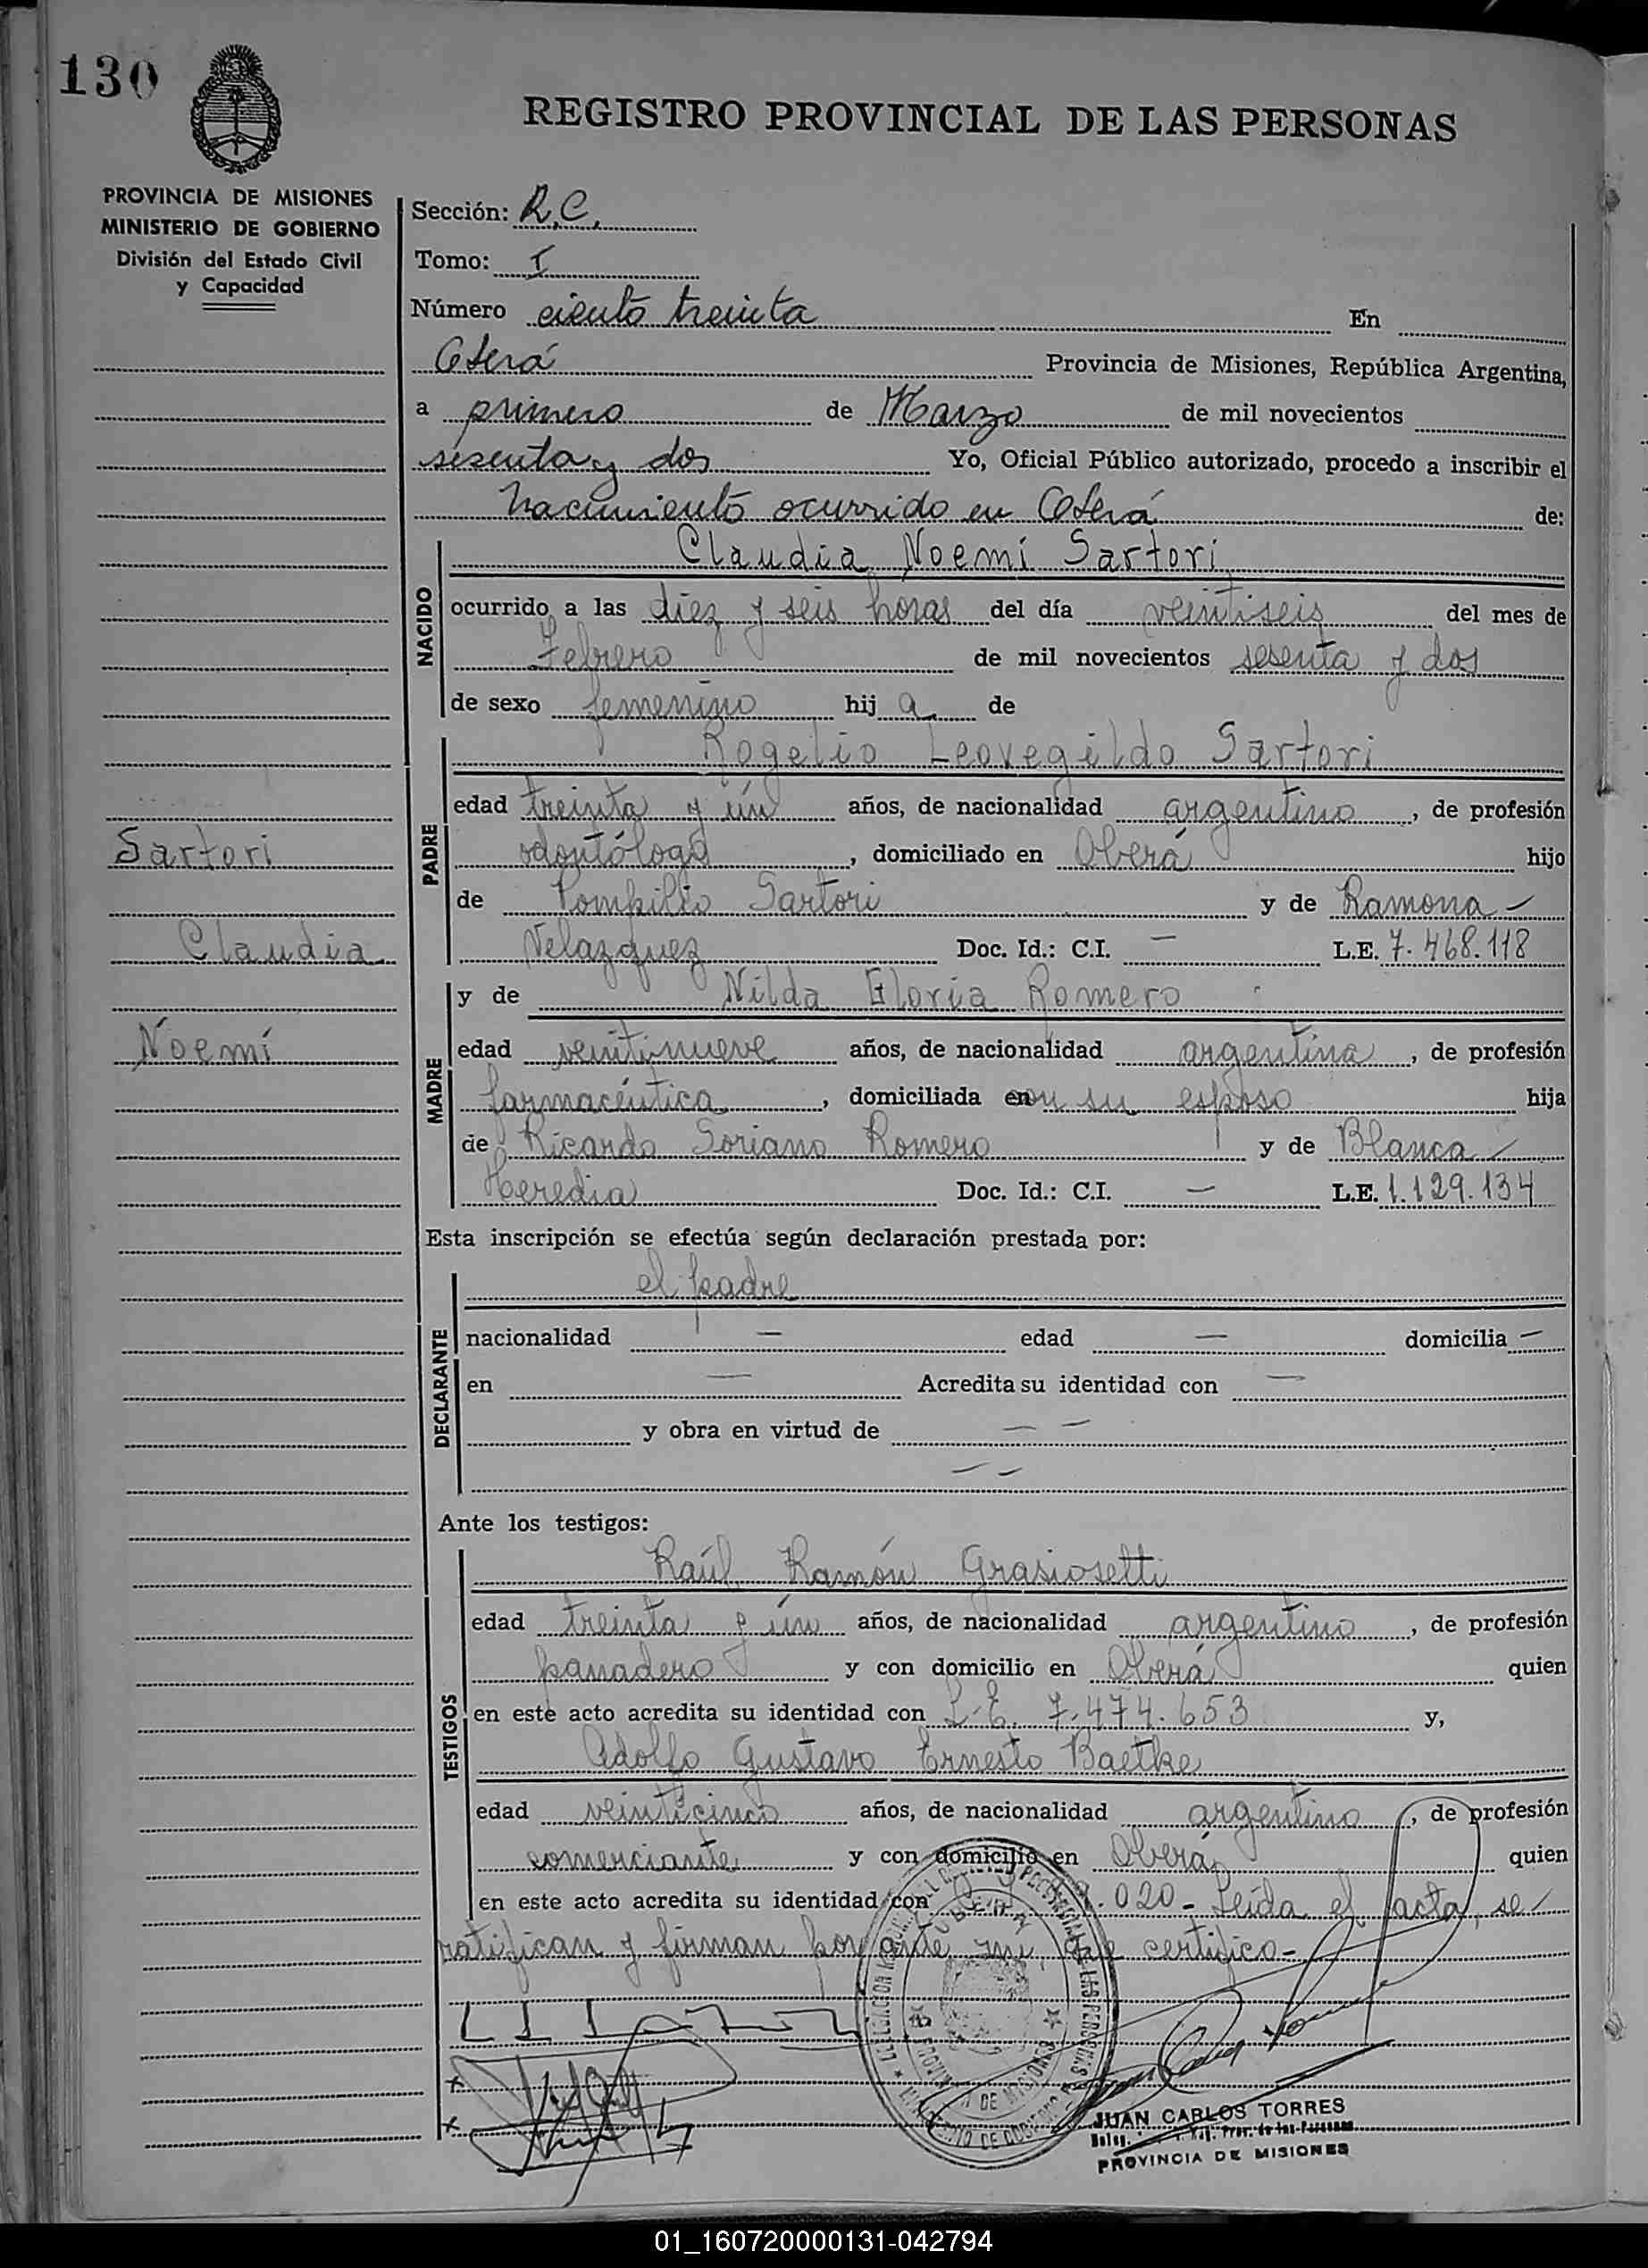 130
REGISTRO PROVINCIAL DE LAS PERSONAS
PROVINCIA DE MISIONES
MINISTERIO DE GOBIERNO
División del Estado Civil
y Capacidad
Sección: R.C.
Tomo: I
Número ciento treinta En
Oberá Provincia de Misiones, República Argentina,
a primero de Marzo de mil novecientos
sesenta y dos Yo, Oficial Público autorizado, procedo a inscribir el
nacimiento ocurrido en Oberá de:
NACIDO
Claudia Noemí Sartori
ocurrido a las diez y seis horas del día veintiseis del mes de
Febrero de mil novecientos sesenta y dos
de sexo femenino hij a de
PADRE
Rogelio Leovegildo Sartori
edad treinta y ún años, de nacionalidad argentino, de profesión
Sartori
odontólogo, domiciliado en Oberá hijo
de Pompilio Sartori y de Ramona -
Claudia
Velazquez Doc. Id.: C.I. — L.E. 7.468.118
MADRE
y de Nilda Gloria Romero
Noemí
edad veintinueve años, de nacionalidad argentina, de profesión
farmacéutica, domiciliada con su esposo hija
de Ricardo Soriano Romero y de Blanca -
Heredia Doc. Id.: C.I. — L.E. 1.129.134
Esta inscripción se efectúa según declaración prestada por:
DECLARANTE
el padre
nacionalidad — edad — domicilia —
en — Acredita su identidad con —
y obra en virtud de — —
— —
Ante los testigos:
TESTIGOS
Raúl Ramón Grasiosetti
edad treinta y ún años, de nacionalidad argentino, de profesión
panadero y con domicilio en Oberá quien
en este acto acredita su identidad con L.E. 7.474.653 y,
Adolfo Gustavo Ernesto Baetke
edad veinticinco años, de nacionalidad argentino, de profesión
comerciante y con domicilio en Oberá quien
en este acto acredita su identidad con .020- Leída el acta, se
ratifican y firman por ante mí que certifico-
OBERÁ
JUAN CARLOS TORRES
PROVINCIA DE MISIONES
01_160720000131-042794